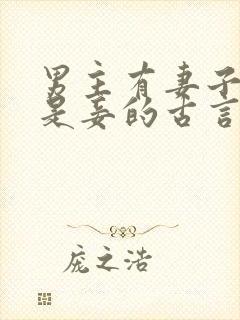 男主有妻子
是妾的古言
庞之浩